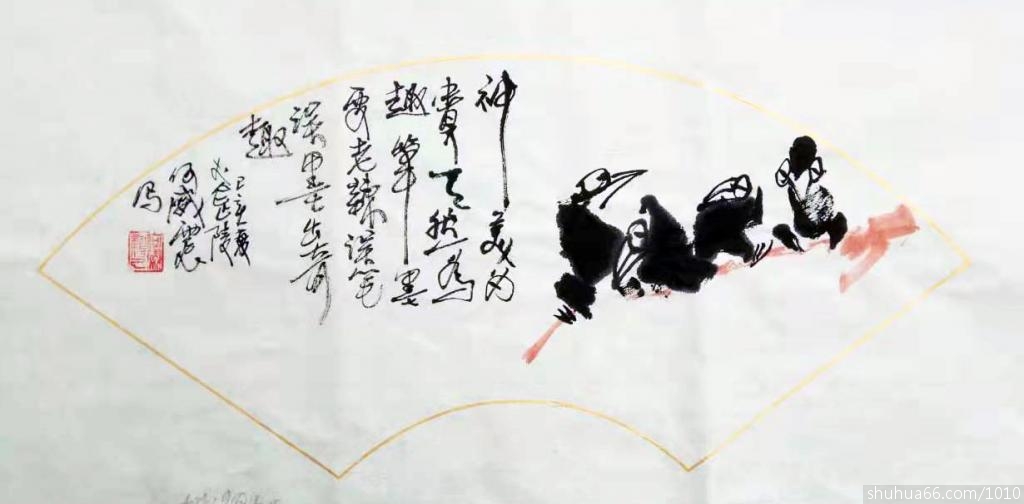 神美为
贵天然為
趣笔墨
要老辣误笔
误墨出奇
趣
己亥夏
陵
何威震
写
shuhua66.com/1010